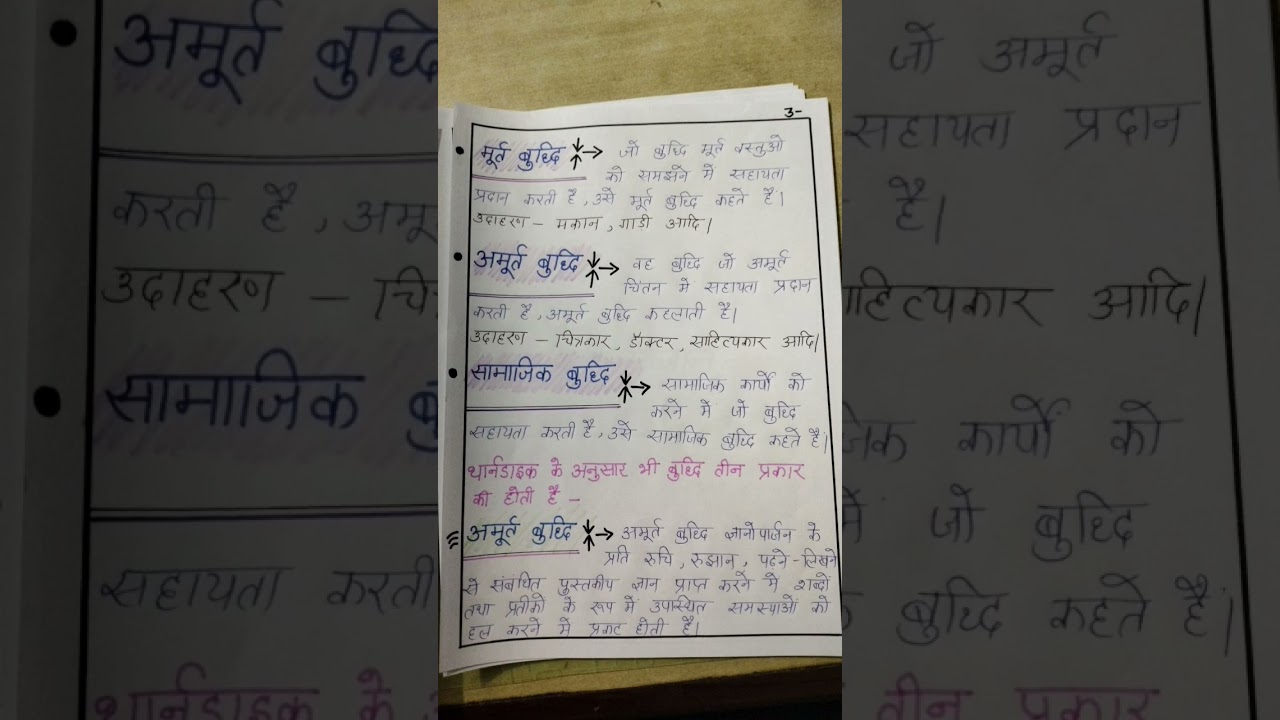 3-
मूर्त बुध्दि → जो बुध्दि मूर्त वस्तुओ
को समझने में सहायता
प्रदान करती है, उसे मूर्त बुध्दि कहते हैं।
उदाहरण – मकान, गाडी आदि।
अमूर्त बुध्दि → वह बुध्दि जो अमूर्त
चिंतन मे सहायता प्रदान
करती है, अमूर्त बुध्दि कहलाती है।
उदाहरण – चित्रकार, डॉक्टर, साहित्यकार आदि।
सामाजिक बुध्दि → सामाजिक कार्यों को
करने में जो बुध्दि
सहायता करती है, उसे सामाजिक बुध्दि कहते हैं।
थार्नडाइक के अनुसार भी बुध्दि तीन प्रकार
की होती है –
अमूर्त बुध्दि → अमूर्त बुध्दि ज्ञानोपार्जन के
प्रति रुचि, रुझान, पढने-लिखने
से संबंधित पुस्तकीय ज्ञान प्राप्त करने मे शब्दों
तथा प्रतीको के रूप में उपस्थित समस्याओं को
हल करने मे प्रकट होती है।